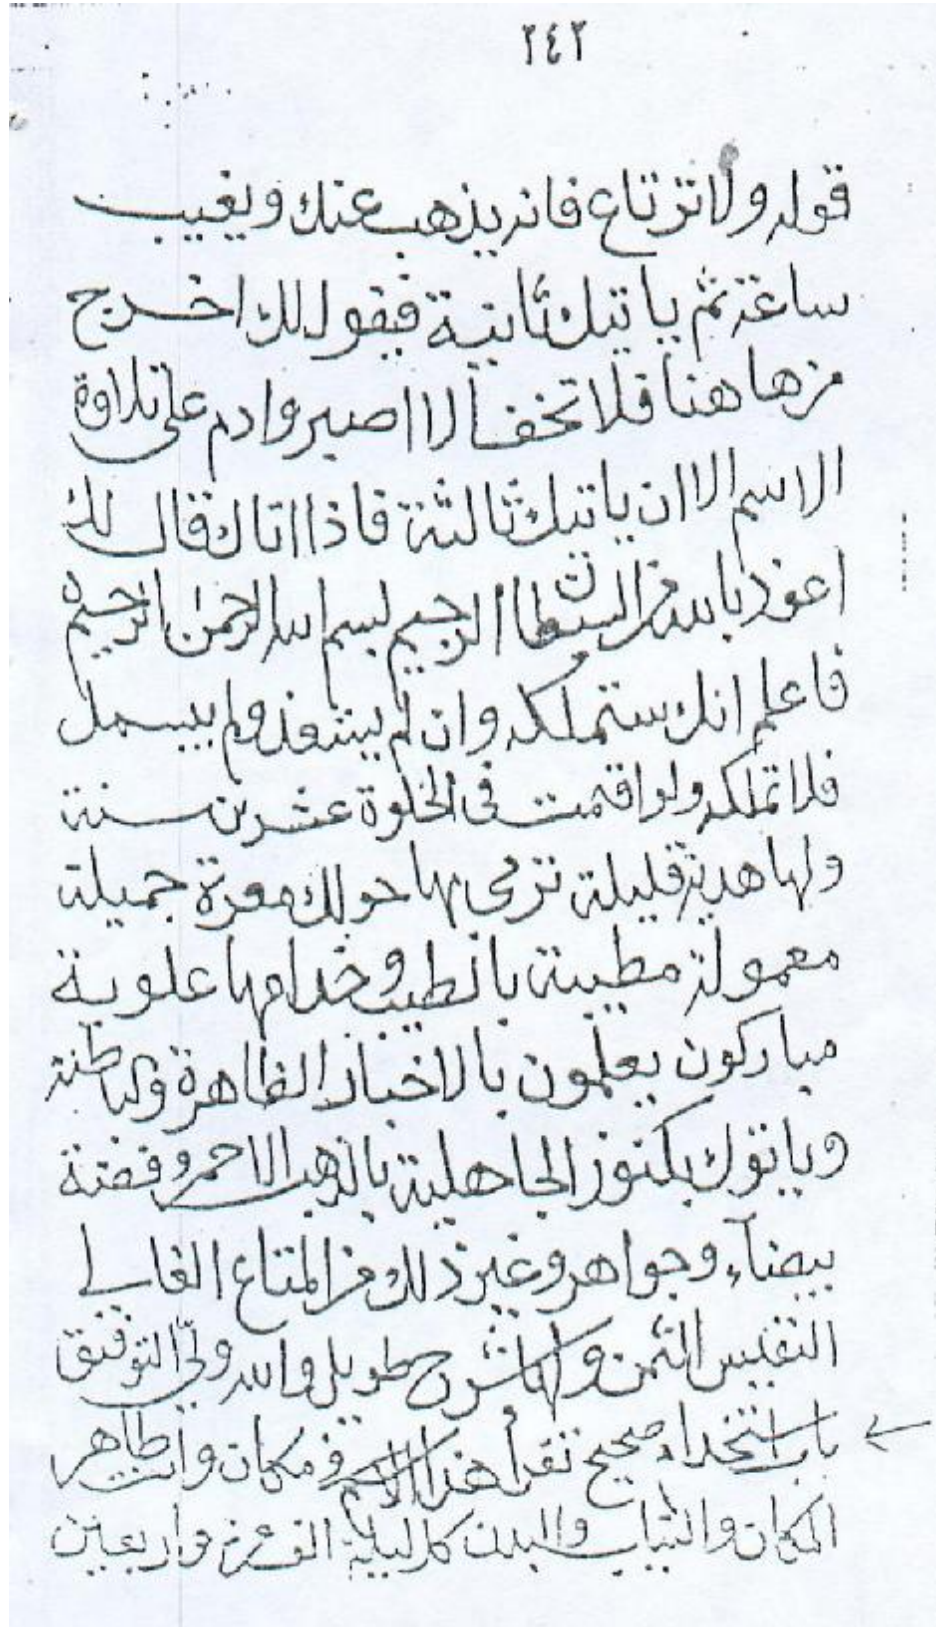 ٢٤٢
قوله ولا ترتاع فانه يذهب عنك ويغيب
ساعة ثم ياتيك ثانية فيقول لك اخرج
من هاهنا فلا تخف الا اصبر وادم على تلاوة
الاسم الا ان ياتيك ثالثة فاذا اتاك قال لك
اعوذ بالله من الشيطان الرجيم بسم الله الرحمن الرحيم
فاعلم انك ستملكه وان لم يتعوذ ولم يبسمل
فلا تملكه ولو اقمت في الخلوة عشرين سنة
ولها هدية قليلة ترمى بها حولك جميلة
معمولة مطيبة بالطيب وخدامها علوية
مباركون يعلمون بالاخبار الظاهرة والباطنة
وياتوك بكنوز الجاهلية بالذهب الاحمر وفضة
بيضاء وجواهر وغير ذلك من المتاع الغالي
النفيس الثمن ولها شرح طويل والله ولي التوفيق
باب استخدام صحيح تقرأ هذا الاسم في مكان وانت طاهر
المكان والثياب والبدن كل ليلة الف مرة واربعين